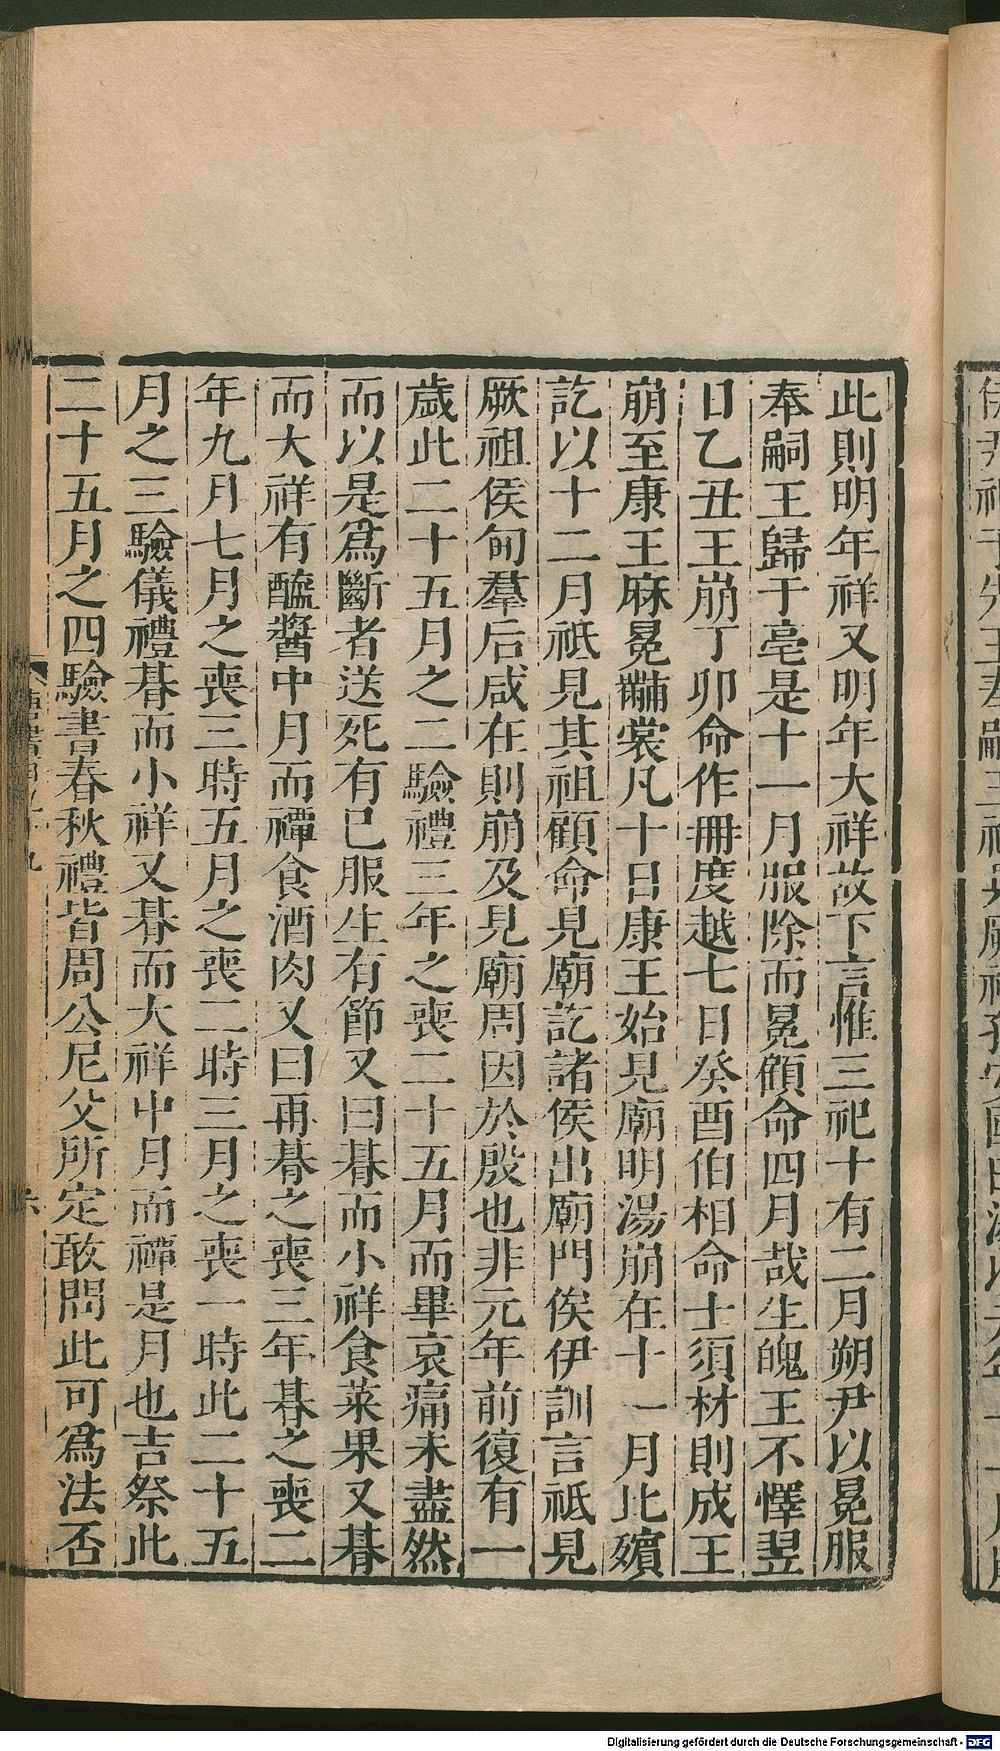 此則明年祥又明年大祥故下言惟三祀十有二月朔尹以冕服
奉嗣王歸于亳是十一月服除而冕顧命四月哉生魄王不懌翌
日乙丑王崩丁卯命作冊度越七日癸酉伯相命士須材則成王
崩至康王麻冕黼裳凡十日康王始見廟明湯崩在十一月比殯
訖以十二月祗見其祖顧命見廟訖諸侯出廟門俟伊訓言祗見
厥祖侯甸羣后咸在則崩及見廟周因於殷也非元年前復有一
歲此二十五月之二驗禮三年之喪二十五月而畢哀痛未盡然
而以是爲斷者送死有已服生有節又曰朞而小祥食菜果又朞
而大祥有醯醬中月而禫食酒肉又曰再朞之喪三年朞之喪二
年九月七月之喪三時五月之喪二時三月之喪一時此二十五
月之三驗儀禮朞而小祥又朞而大祥中月而禫是月也吉祭此
二十五月之四驗書春秋禮皆周公尼父所定敢問此可爲法否